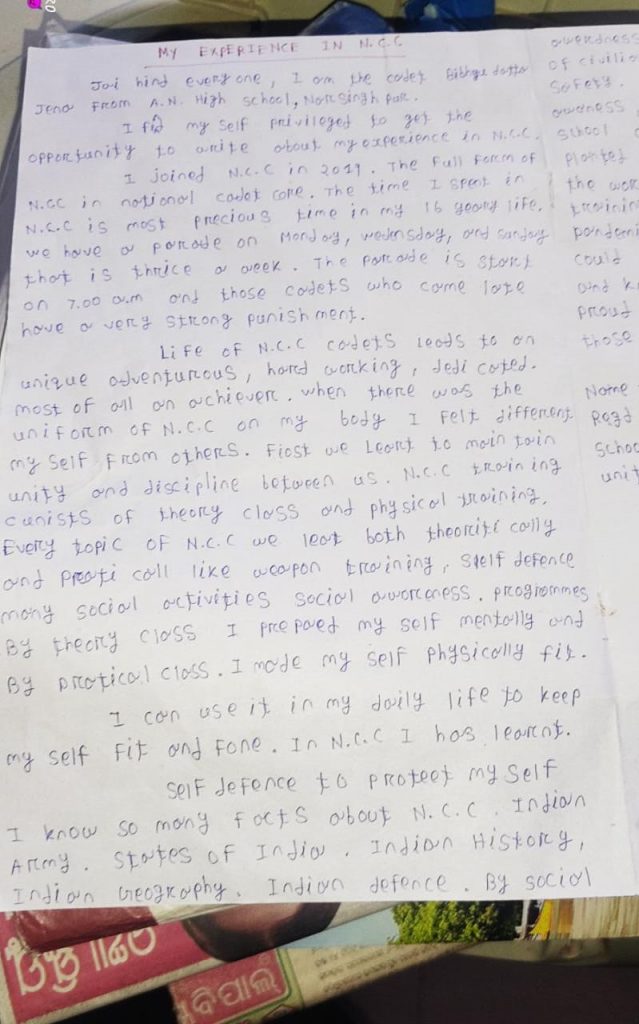 MY EXPERIENCE IN N.C.C
Jai hind everyone, I am the cadet Bibhye datta
Jena From A.N. High school, Narsingh pur.
I find my self privileged to get the
opportunity to write about my experience in N.C.C.
I joined N.C.C in 2019. The full form of
N.CC in national cadet core. The time I spent in
N.C.C is most precious time in my 16 years life.
we have a parade on Monday, wednesday, and sanday
that is thrice a week. The parade is start
on 7.00 a.m and those cadets who come late
have a very strong punishment.
Life of N.C.C cadets leads to an
unique adventurous, hard working, dedi cated.
most of all an achiever. when there was the
uniform of N.C.C on my body I felt different
my self from others. First we leart to main tain
unity and discipline between us. N.C.C train ing
cunists of theory class and physical training.
Every topic of N.C.C we leat both theoriti cally
and preati call like weapon training, self defence
many social activities social awareness. programmes
By theory class I prepaed my self mentally and
By pratical class. I made my self physically fit.
I can use it in my daily life to keep
my self fit and fane. In N.C.C I has learnt.
self defence to protect my self
I know so many facts about N.C.C. Indian
Army. States of India. Indian History,
Indian Geography. Indian defence. By social
awardness
of civilia
safety.
awadness
school
planted
the wor
trainin
pandemi
could
and k
proud
those
Name
Regd
Schoo
unit
ବିପାଲି